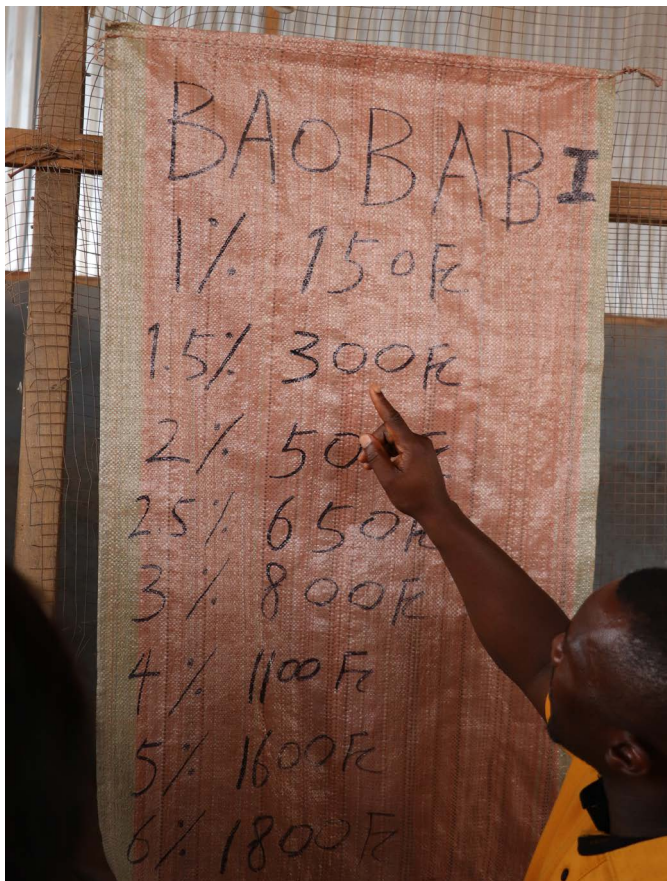 BAOBAB I
1% 150Fc
1.5% 300Fc
2% 50
25% 650Fc
3% 800Fc
4% 1100 Fc
5% 1600Fc
6% 1800Fc